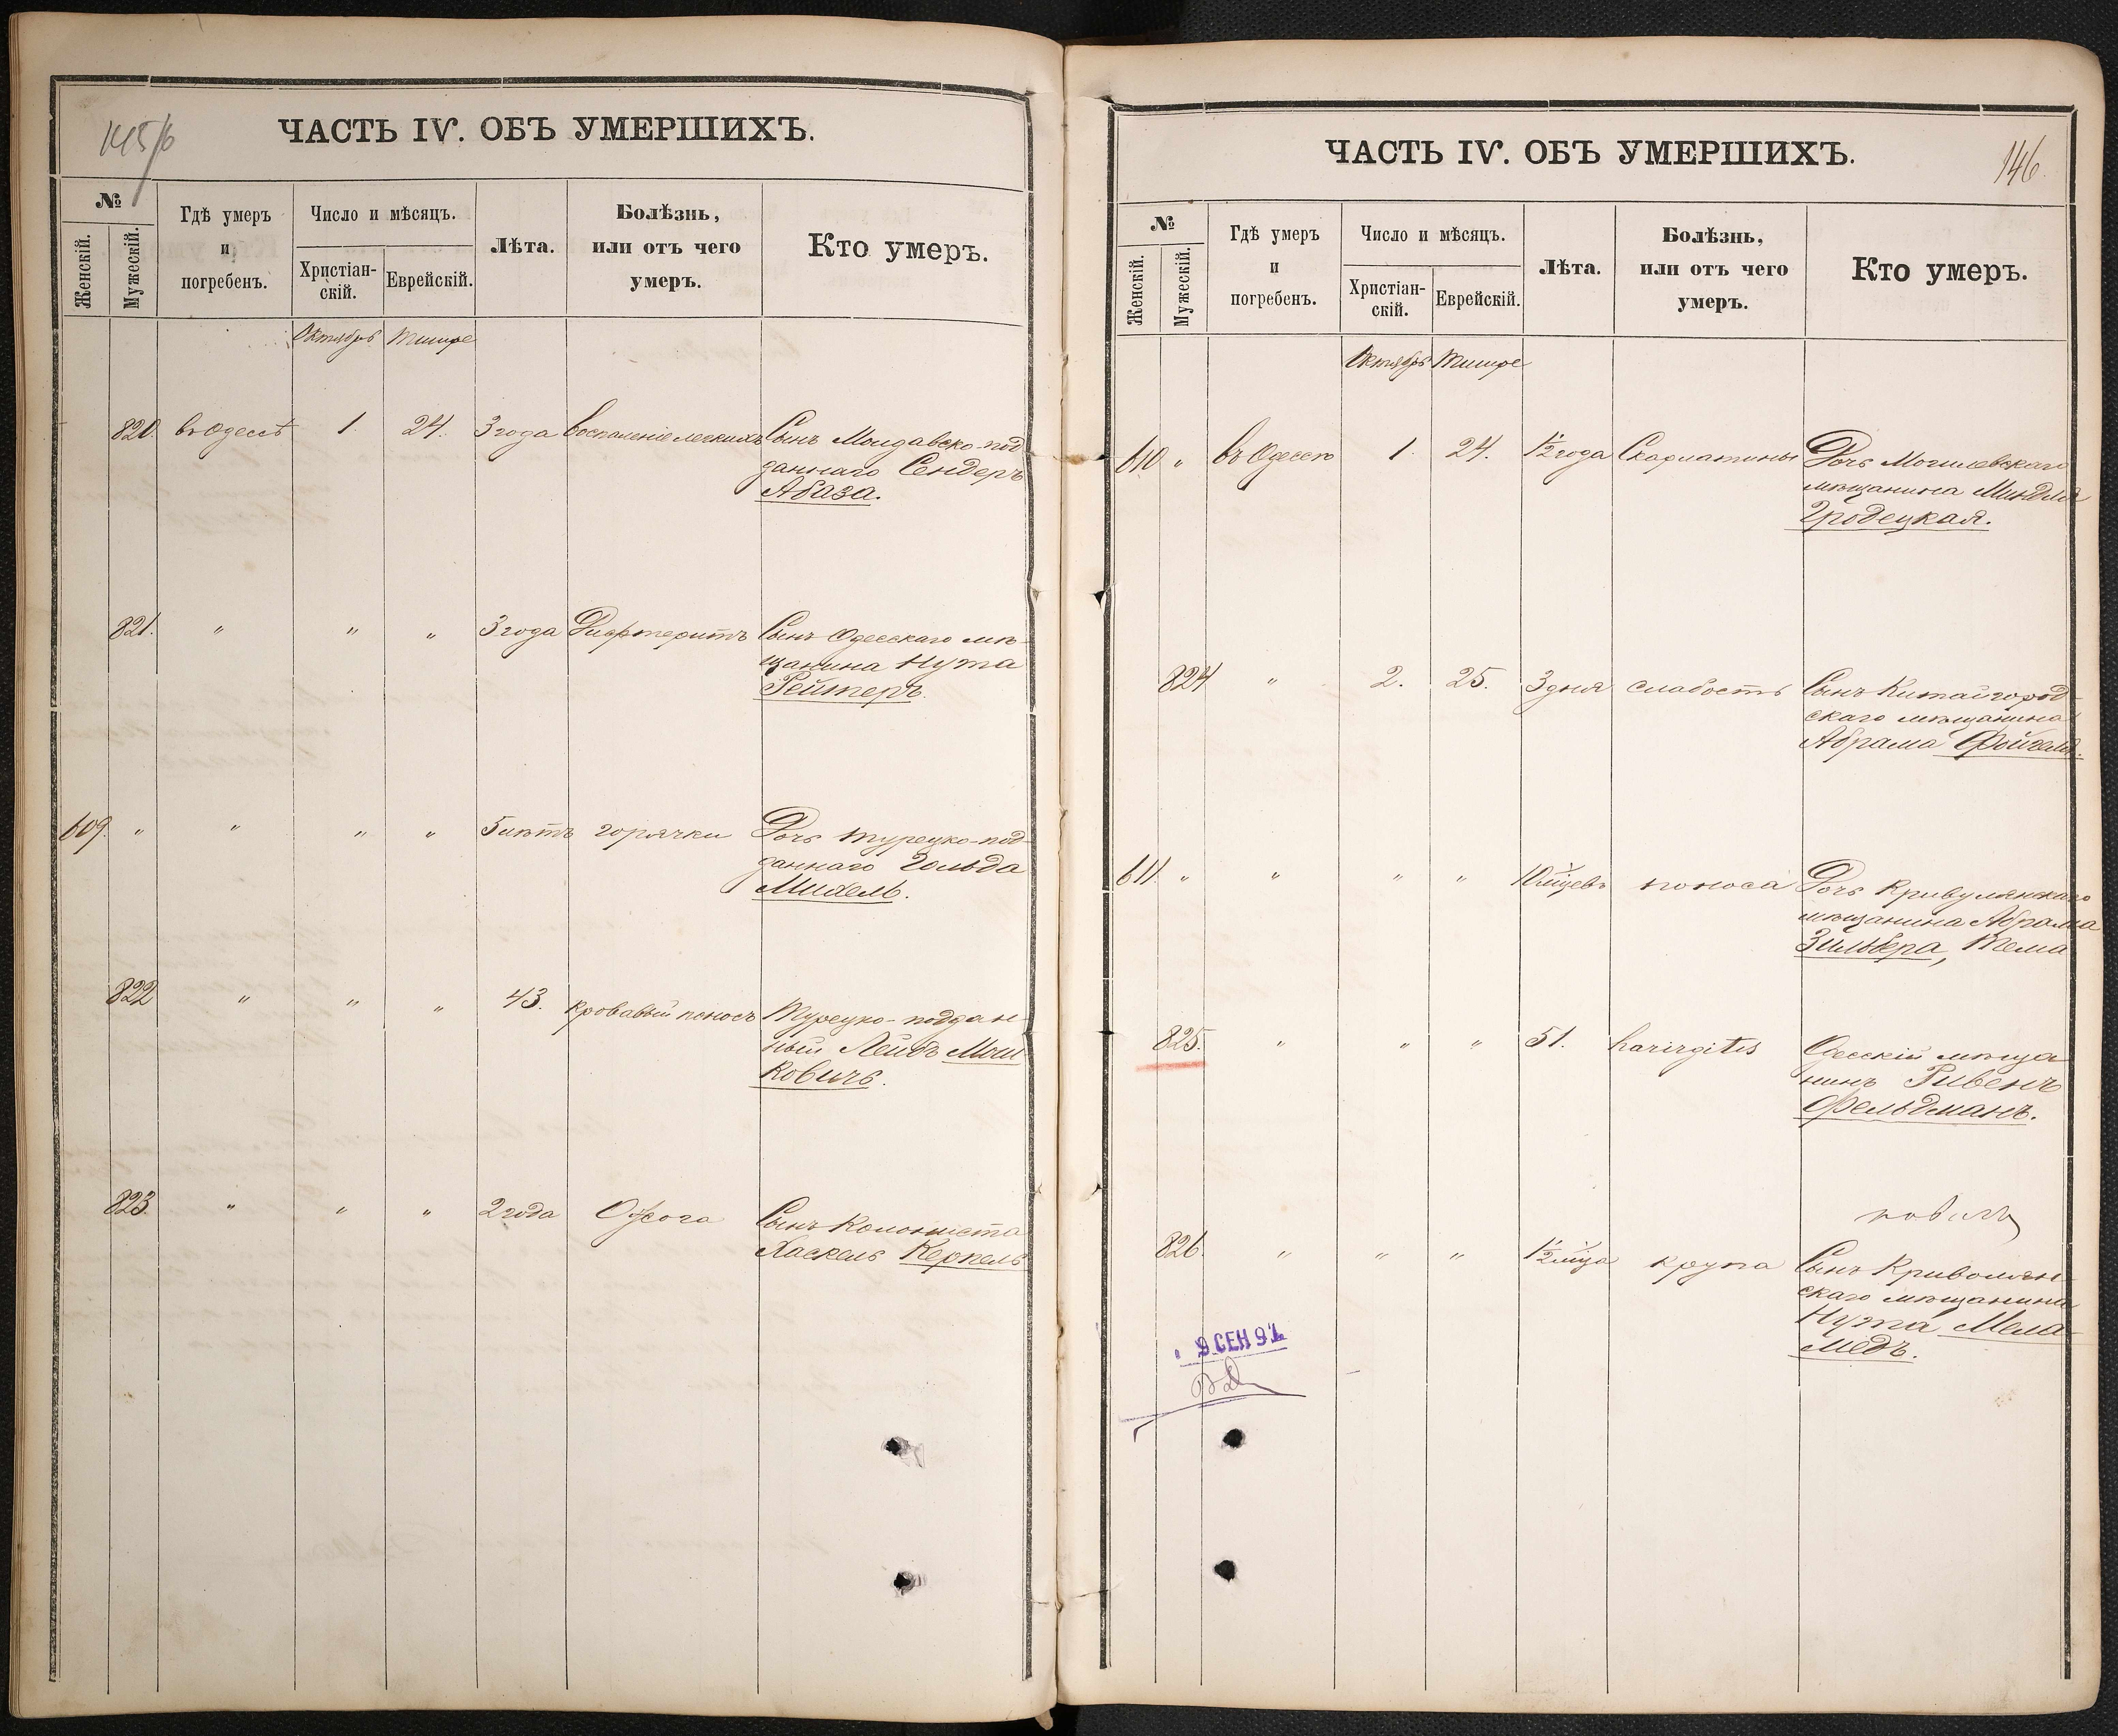 145/б
ЧАСТЬ IV. ОБЪ УМЕРШИХЪ.
№
Женскій.
Мужескій.
Гдѣ умеръ
и
погребенъ.
Число и мѣсяцъ.
Христіан-
скій.
Еврейскій.
Лѣта.
Болѣзнь,
или отъ чего
умеръ.
Кто умеръ.
Октябрь Тишре
820. въ Одессѣ 1. 24. 3 года Воспаленіе легкихъ Сынъ Молдавско-под
даннаго Сендеръ
Абаза.
821. " " " 3 года Дифтеритъ Сынъ Одесскаго мѣ-
щанина Нута
Рейтеръ.
609. " " " " 5 лѣтъ горячки Дочь турецко-под-
даннаго Гольда
Михель.
822 " " " 43. кровавый поносъ Турецко-поддан-
ный Лейбъ Мош
ковичъ.
823. " " " 2 года Сынъ Колониста
Хаскель Керпель
ЧАСТЬ IV. ОБЪ УМЕРШИХЪ.
146.
№
Женскій.
Мужескій.
Гдѣ умеръ
и
погребенъ.
Число и мѣсяцъ.
Христіан-
скій.
Еврейскій.
Лѣта.
Болѣзнь,
или отъ чего
умеръ.
Кто умеръ.
Октябрь Тишре
610 " въ Одессѣ 1. 24. 1½ года Скарлатины Дочь Могилевскаго
мѣщанина Миндля
Гродецкая.
824 " 2. 25. 3 дня слабость Сынъ Китайгород-
скаго мѣщанина
Абрама Фойгель.
611. " " " " 10 мцевъ поноса Дочь Кривулянскаго
мѣщанина Абрама
Зильбера, Тема
825. " " " 51. Одесскій мѣща
нинъ Ривенъ
Фельдманъ.
826. " " " 1½ мца крупа Сынъ Криволян-
скаго мѣщанина
Нута Мела-
медъ.
9 СЕН 91